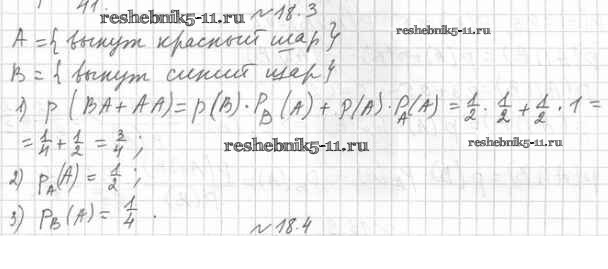 41.
reshebnik5-11.ru
№18.3
A = { вынут красный шар}
reshebnik5-11.ru
B = { вынут синий шар}
1) p (BA + AA) = p(B) · P_B (A) + p(A) · P_A(A) = 1/2 · 1/2 + 1/2 · 1 =
= 1/4 + 1/2 = 3/4 ;
reshebnik5-11.ru
reshebnik5-11.ru
2) P_A(A) = 1/2 ;
3) P_B(A) = 1/4 .
№18.4
reshebnik5-11.ru